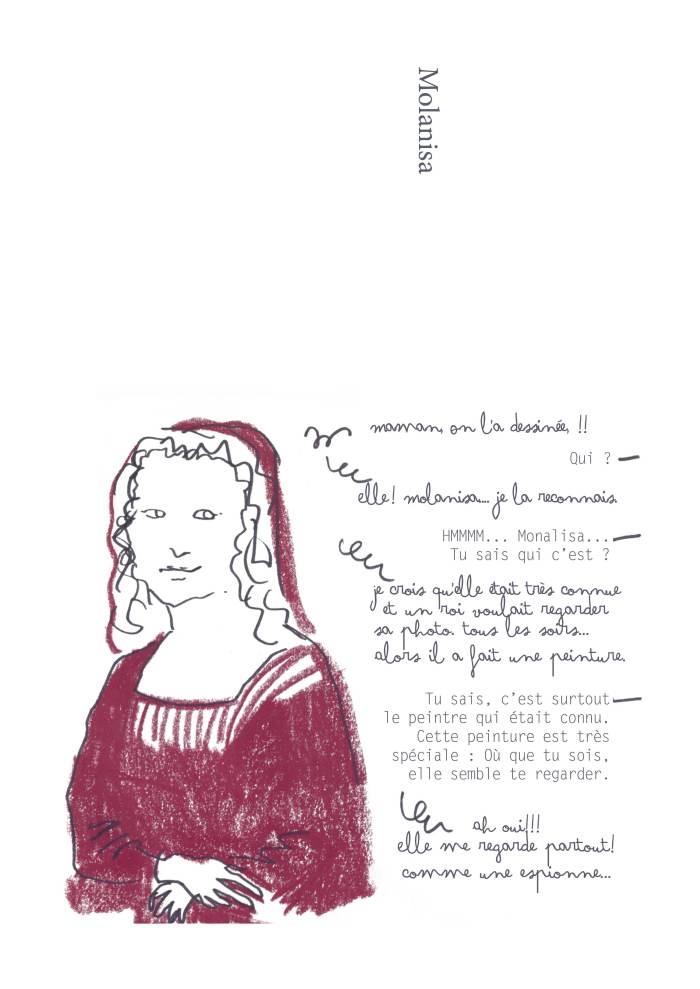 Molanisa
maman, on l'a dessinée, !!
Qui ?
elle! molanisa.... je la reconnais.
HMMMM... Monalisa...
Tu sais qui c'est ?
je crois qu'elle était très connue
et un roi voulait regarder
sa photo. tous les soirs...
alors il a fait une peinture.
Tu sais, c'est surtout
le peintre qui était connu.
Cette peinture est très
spéciale : Où que tu sois,
elle semble te regarder.
ah oui!!!
elle me regarde partout!
comme une espionne...